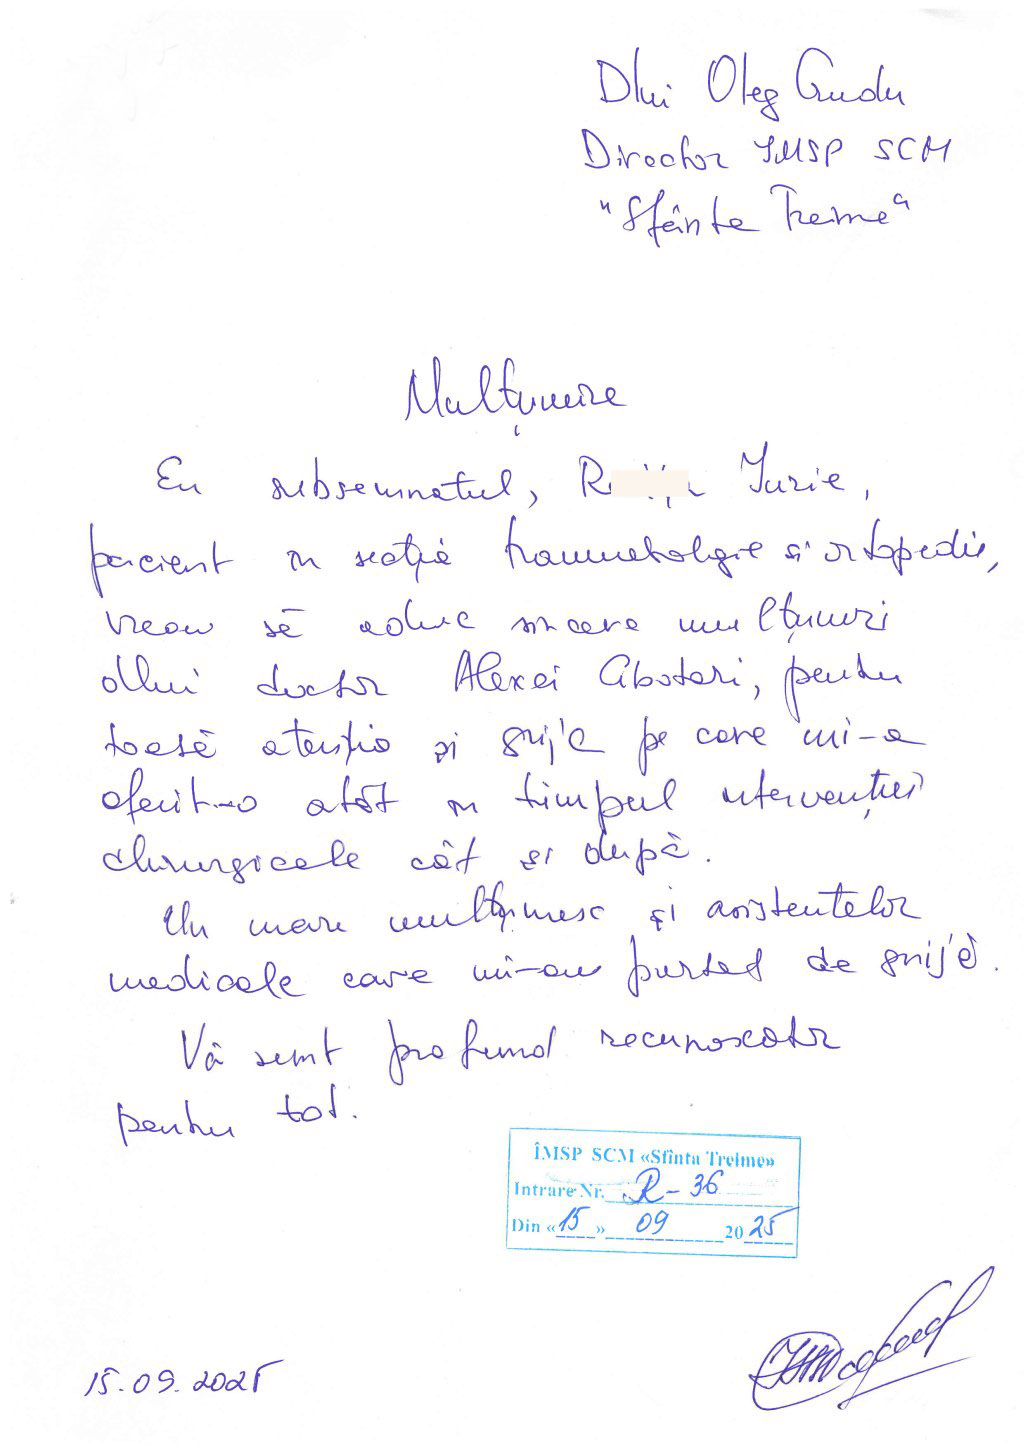 Dlui Oleg Crudu
Director IMSP SCM
"Sfânta Treime"
Mulțumire
Eu subsemnatul, R Iurie,
pacient în secția traumatologie și ortopedie,
vreau să aduc sincere mulțumiri
dlui doctor Alexei Cibotari, pentru
toată atenția și grija pe care mi-a
oferit-o atât în timpul intervenției
chirurgicale cât și după.
Un mare mulțumesc și asistentelor
medicale care mi-au purtat de grijă.
Vă sunt profund recunoscător
pentru tot.
ÎMSP SCM «Sfînta Treime»
Intrare Nr. R-36
Din «15» 09 2025
15.09.2025